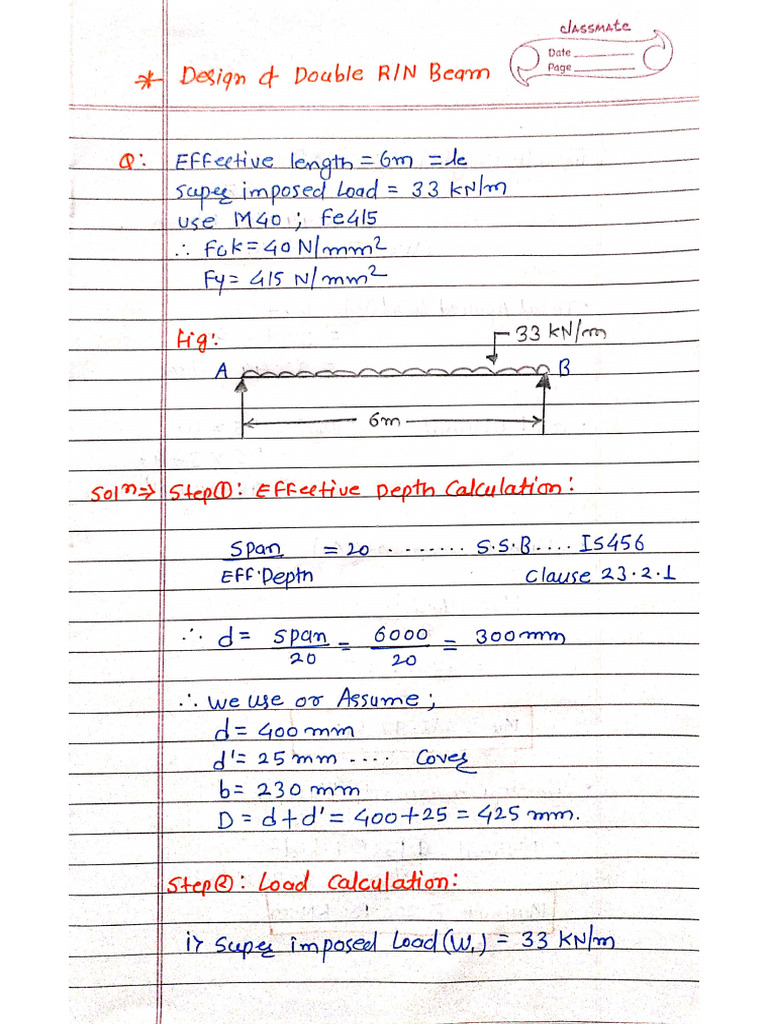 classmate
Date
Page
* Design of Double R/N Beam
Q: Effective length = 6m = le
super imposed Load = 33 kN/m
use M40 ; Fe415
∴ Fck = 40 N/mm²
Fy = 415 N/mm²
Fig:
33 kN/m
A B
6m
Solⁿ⇒ Step①: Effective Depth Calculation:
Span = 20 ........ S.S.B.... IS456
Eff. Depth Clause 23.2.1
∴ d = Span = 6000 = 300mm
20 20
∴ we use or Assume ;
d = 400 mm
d' = 25 mm .... Cover
b = 230 mm
D = d + d' = 400 + 25 = 425 mm.
Step②: Load Calculation:
i> Super imposed Load (W₁) = 33 kN/m